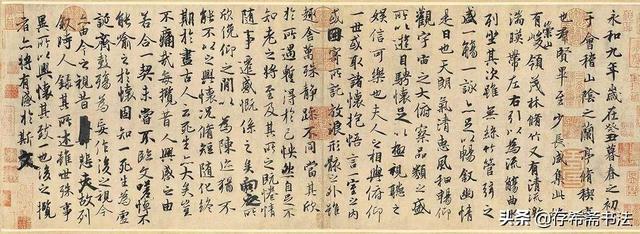 永和九年歲在癸丑暮春之初
于會稽山陰之蘭亭脩禊
也群賢畢至少長咸集此
有崇山峻領茂林脩竹又有清流
湍暎帶左右引以為流觴曲
列坐其次雖無絲竹管弦之
盛一觴一詠亦足以暢敘幽情
是日也天朗氣清惠風和暢仰
觀宇宙之大俯察品類之盛
所以遊目騁懷足以極視聽之
娛信可樂也夫人之相與俯仰
一世或取諸懷抱悟言一室之內
或因寄所託放浪形骸之外雖
趣舍萬殊靜躁不同當其欣
於所遇蹔得於己怏然自足不
知老之將至及其所之既惓情
隨事遷感慨係之矣向之所
欣俛仰之閒以為陳迹猶不
能不以之興懷況脩短隨化終
期於盡古人云死生亦大矣豈
不痛哉每攬昔人興感之由
若合一契未嘗不臨文嗟悼不
能喻之於懷固知一死生為虛
誕齊彭殤為妄作後之視今
亦由今之視昔悲夫故列
敘時人錄其所述雖世殊事
異所以興懷其致一也後之攬
者亦將有感於斯文
头条 @存希斋书法